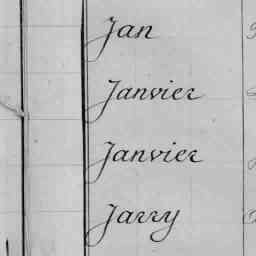 Jan
Janvier
Janvier
Jarry